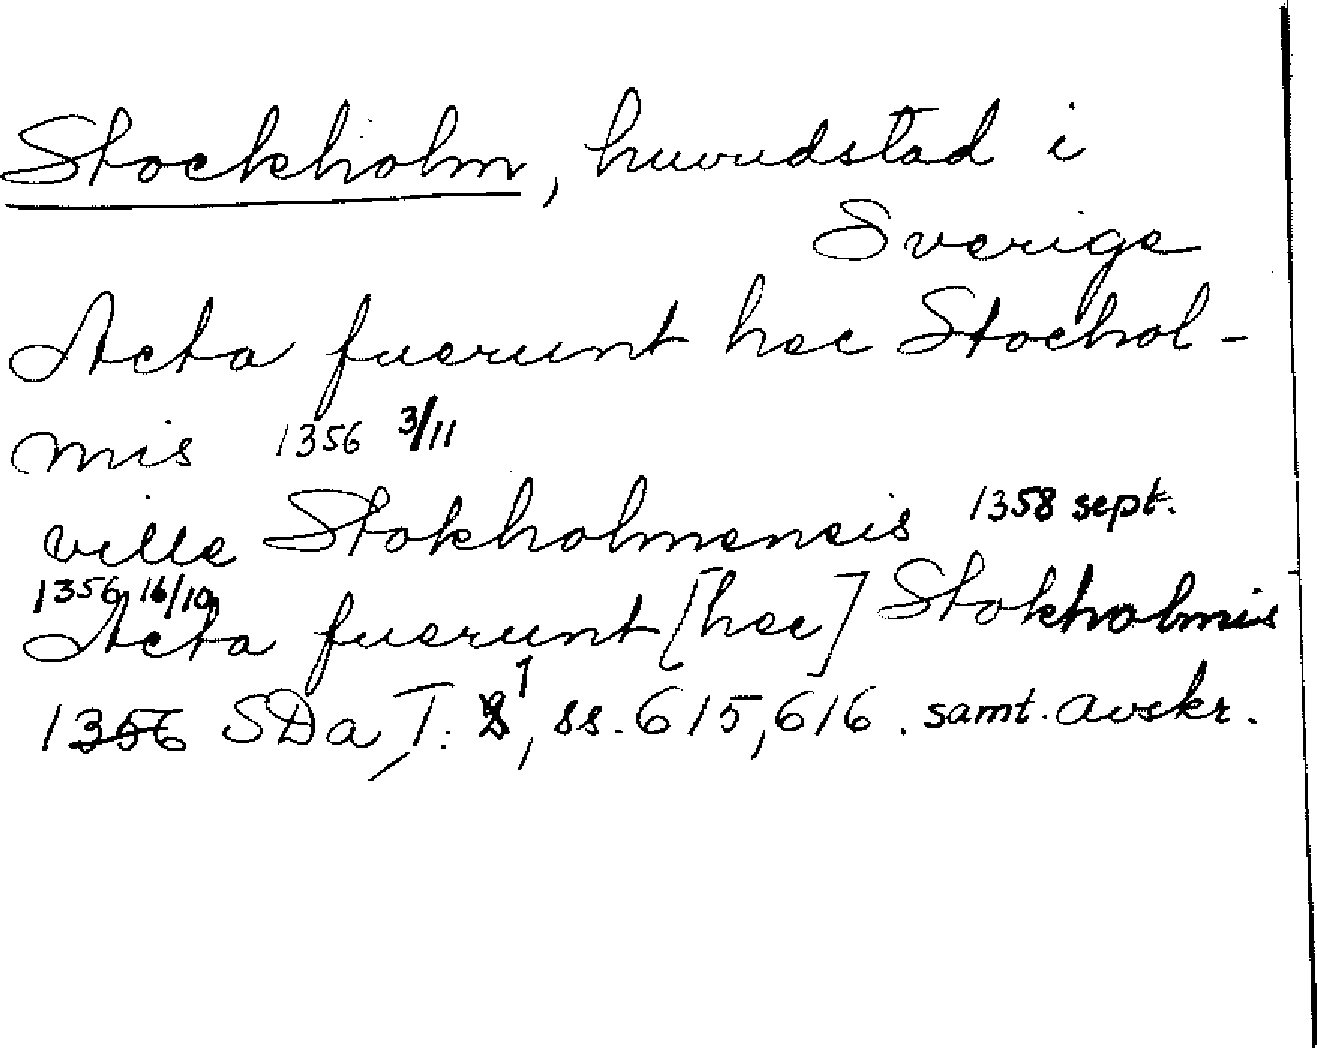 Stockholm, huvudstad i
Sverige
Acta fuerunt hec Stochol-
mis 1356 3/11
ville Stokholmensis 1358 sept.
1356 16/10
Acta fuerunt [hec] Stokholmis
1356 SDa, T. 1, ss. 615, 616. samt. avskr.